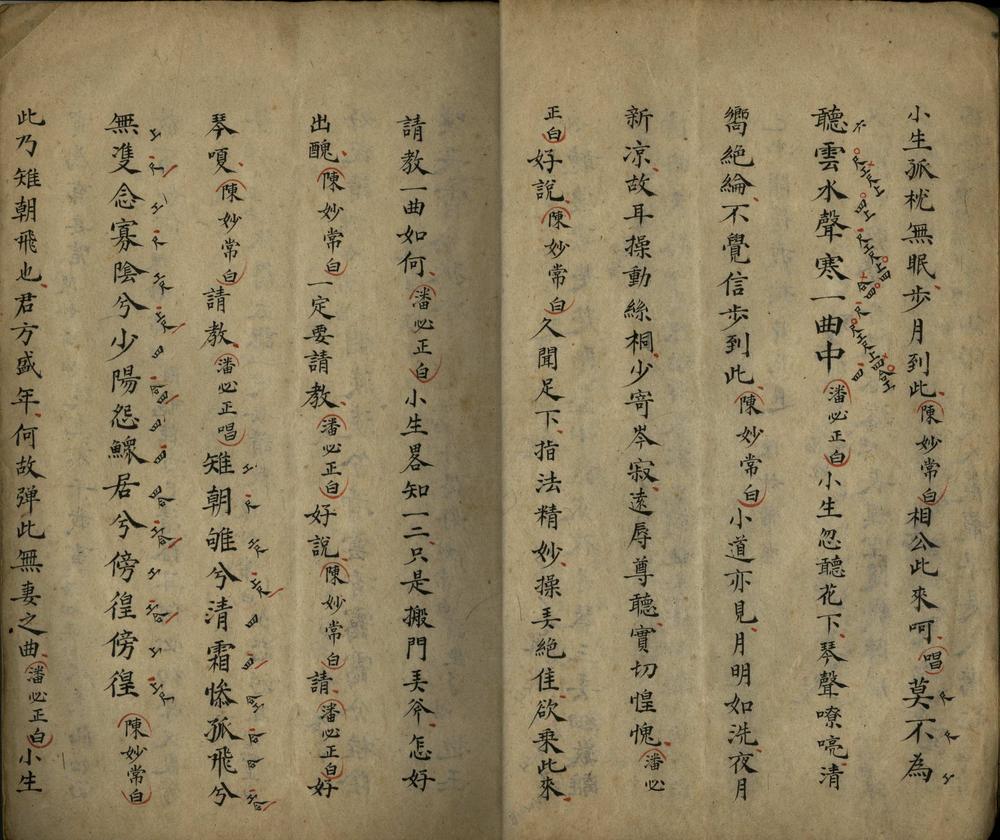 小生孤枕無眠步月到此陳妙常白相公此來呵唱莫不為
聽雲水聲寒一曲中潘必正白小生忽聽花下琴聲嘹喨清
嚮絕綸不覺信步到此陳妙常白小道亦見月明如洗夜月
新凉故耳操動絲桐少寄岑寂遠辱尊聽實切惶愧潘必
正白好說陳妙常白久聞足下指法精妙操弄絕佳欲乗此來
請教一曲如何潘必正白小生畧知一二只是搬門弄斧怎好
出醜陳妙常白一定要請教潘必正白好說陳妙常白請潘必正白好
琴嗄陳妙常白請教潘必正唱雉朝雊兮清霜慘孤飛兮
無雙念寡陰兮少陽怨鰥居兮傍徨傍徨陳妙常白
此乃雉朝飛也君方盛年何故弹此無妻之曲潘必正白小生